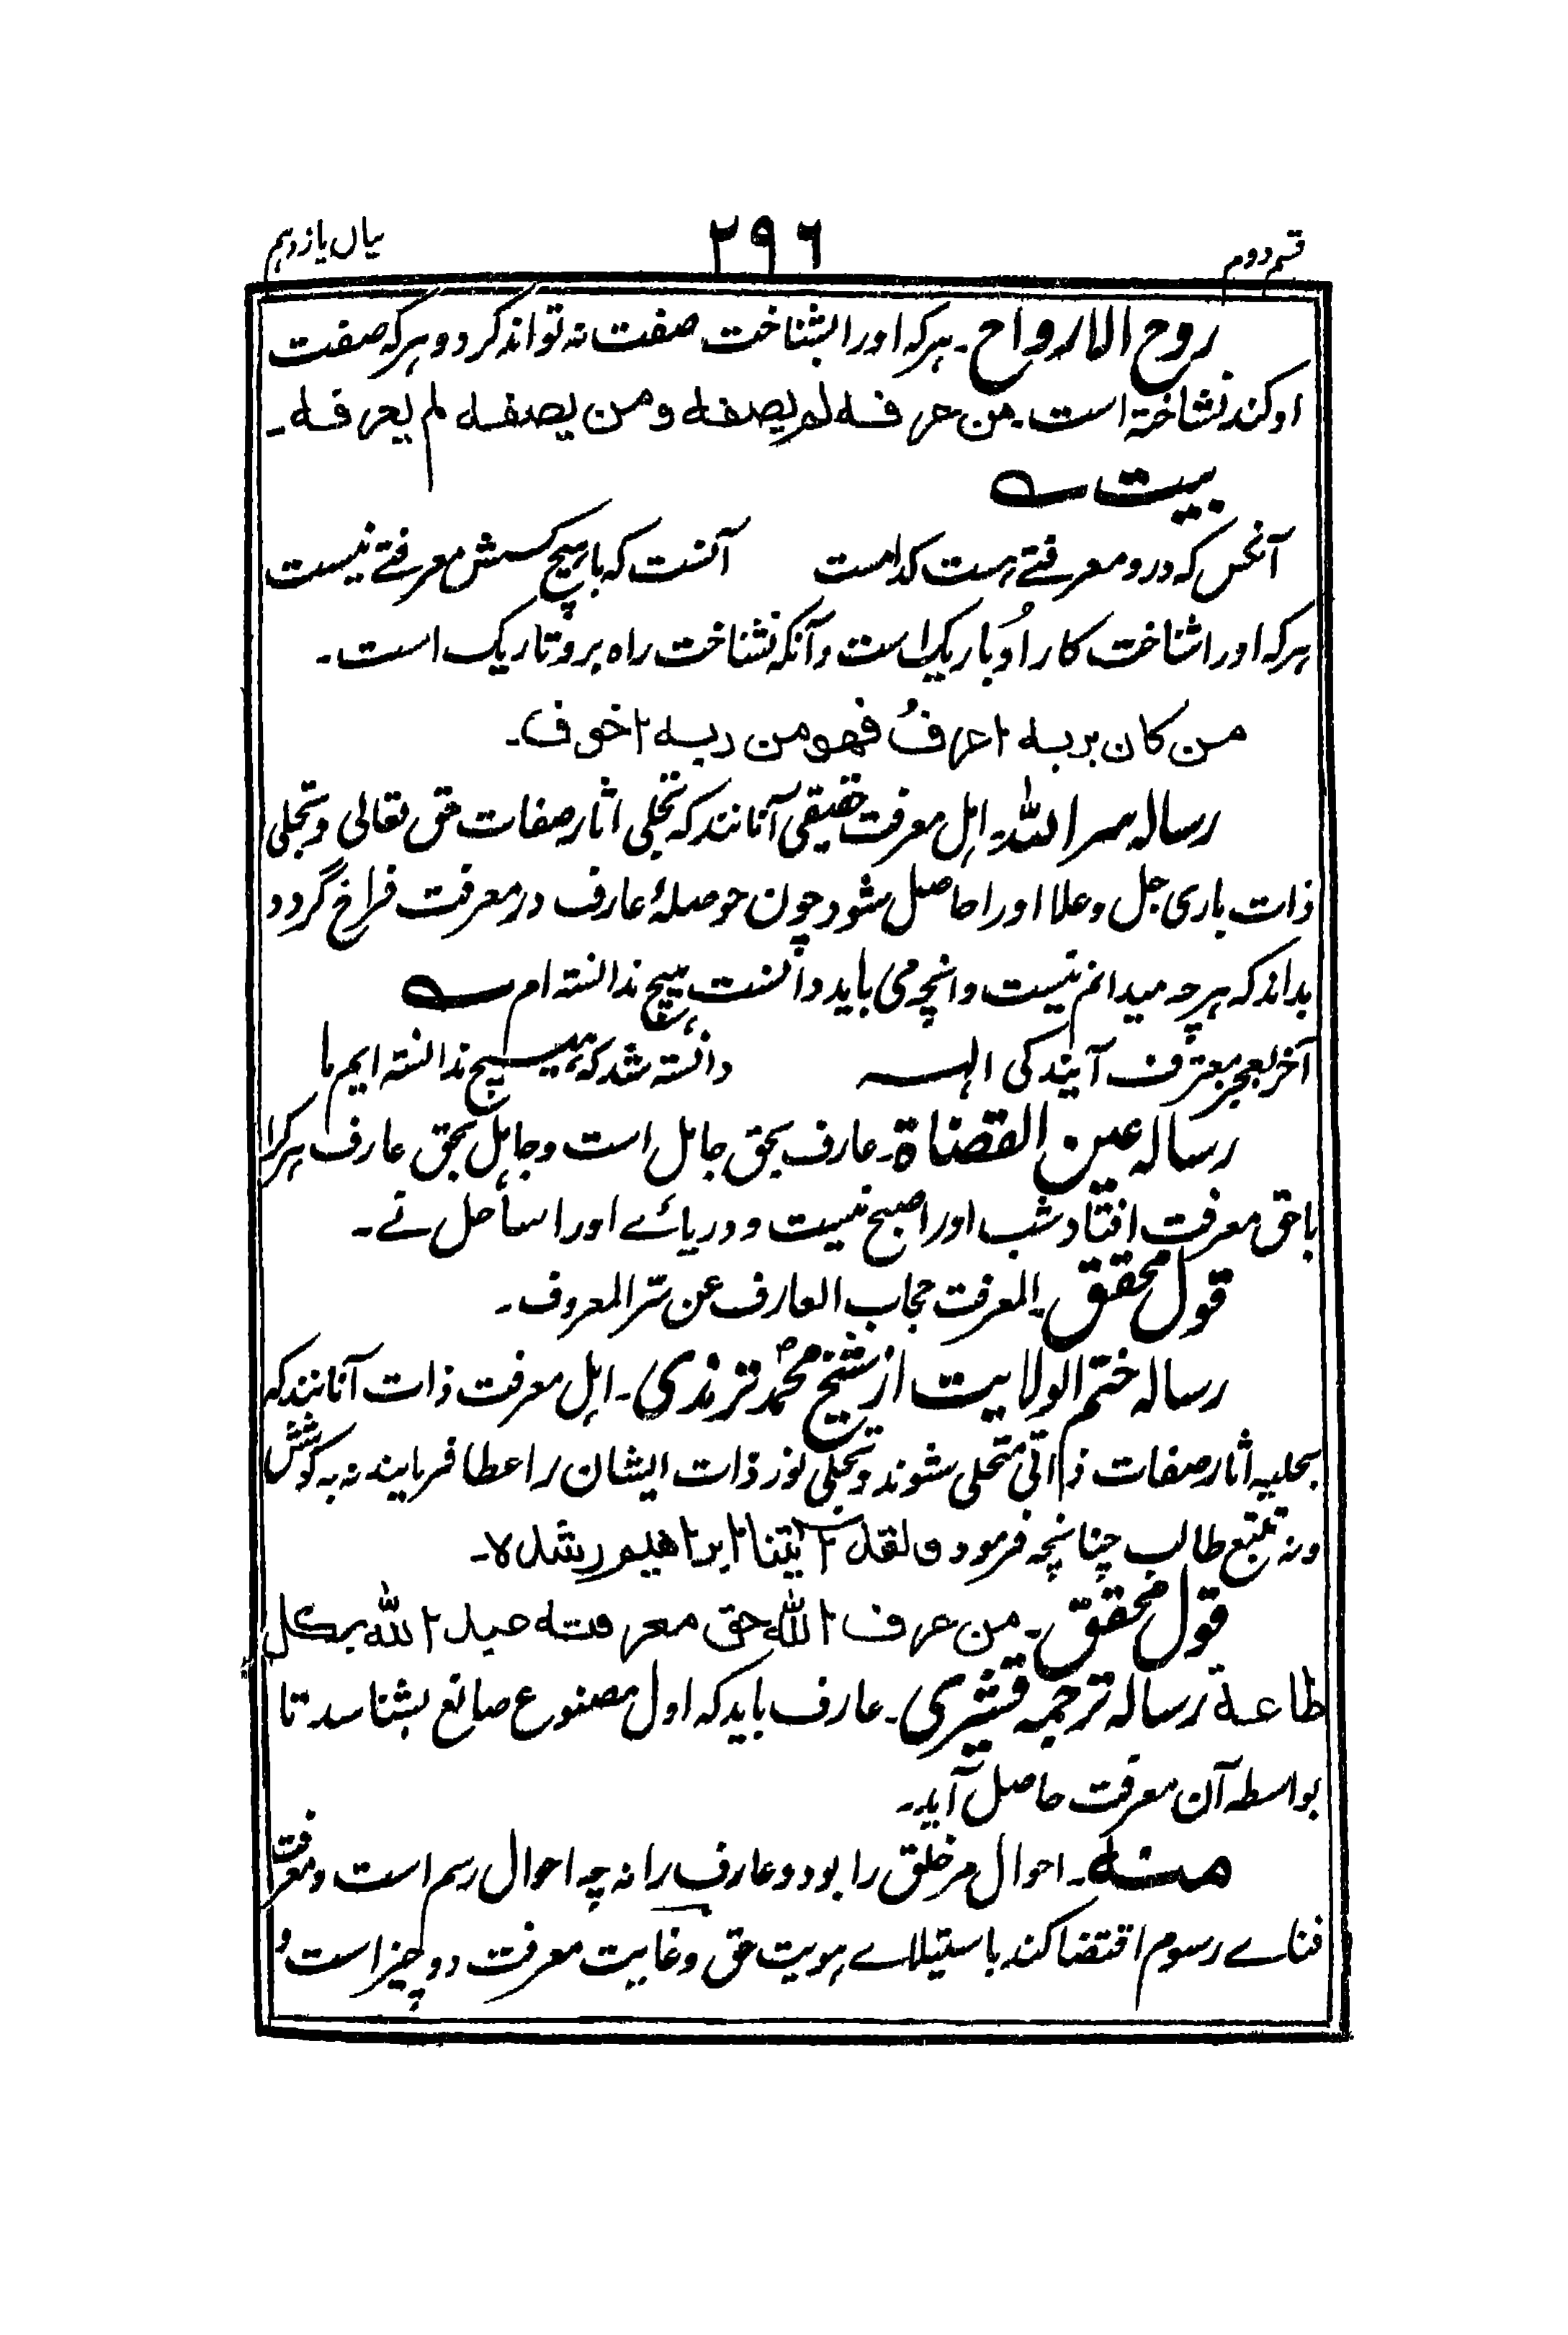 قسم دوم
۲۹۶
بیان یازدہم
روح الارواح۔ ہرکہ اورا بشناخت صفت نہ تواند کرد و ہرکہ صفت
او کند نشناختہ است۔ من عرفہ لم یصفہ ومن یصفہ لم یعرفہ۔
بیت ؎
آنکس کہ درو معرفتے ہست کدامست آنست کہ با ہیچ کسش معرفتے نیست
ہرکہ اورا شناخت کار اُو باریک است و آنکہ نشناخت راہ برو تاریک است۔
من کان بربہ اعرفُ فھو من ربہ اخوف۔
رسالہ سر اللہ۔ اہل معرفت حقیقی آنانند کہ تجلی اثار صفات حق تعالی و تجلی
ذات باری جل و علا اورا حاصل شود چون حوصلۂ عارف در معرفت فراخ گردد
بداند کہ ہرچہ میدانم نیست و انچہ می باید دانست ہیچ ندانستہ ام ؎
آخر بعجز معترف آیند کی الہ دانستہ شد کہ ہیچ ندانستہ ایم ما
رسالہ عین القضاۃ۔ عارف بحق جاہل است و جاہل بحق عارف ہرکرا
باحق معرفت افتاد شب اورا صبح نیست و دریائے اورا ساحل نے۔
قول محقق۔ المعرفت حجاب العارف عن سّر المعروف۔
رسالہ ختم الولایت از شیخ محمد ترمذی۔ اہل معرفت ذات آنانند کہ
بحلیہ اثار صفات ذاتی متحلی شوند و تجلی نور ذات ایشان را عطا فرمایند نہ بہ کوشش
و نہ تتبع طالب چنانچہ فرمود ولقد اٰتینا ابراھیم رشدہ۔
قول محقق۔ من عرف اللہ حق معرفتہ عبد اللہ بکل
طاعۃ رسالہ ترجمہ قشیری۔ عارف باید کہ اول مصنوع صانع بشناسد تا
بواسطہ آن معرفت حاصل آید۔
منہ۔ احوال مر خلق را بود و عارف را نہ چہ احوال رسم است و معرفت
فنائے رسوم اقتضا کند باستیلائے ہویت حق و غایت معرفت دو چیز است و